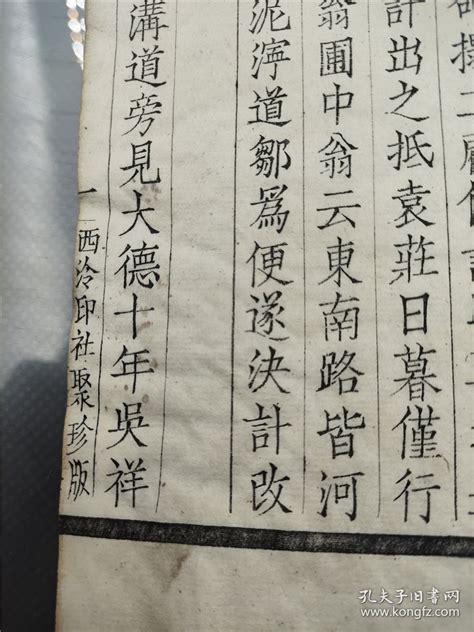 計出之抵袁莊日暮僅行
翁圃中翁云東南路皆河
泥濘道鄒爲便遂決計改
溝道旁見大德十年吳祥
一 西泠印社聚珍版
孔夫子旧书网
www.kongfz.com